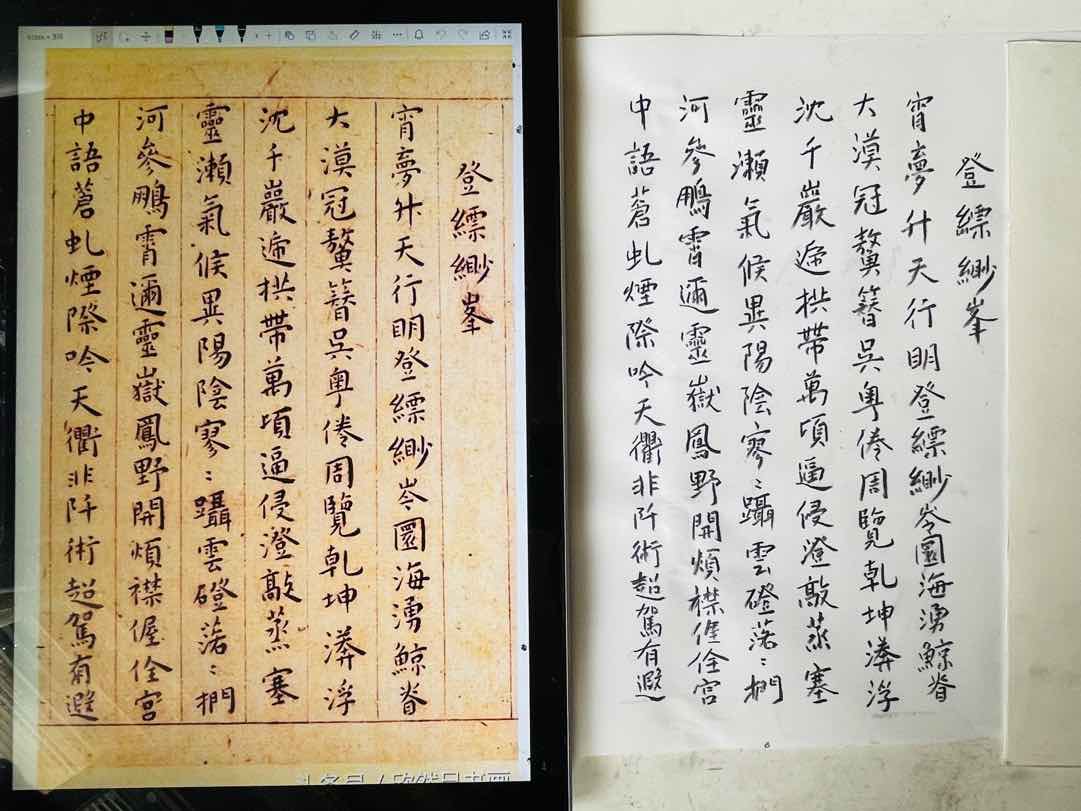 登縹緲峯
宵夢升天行明登縹緲岑圜海湧鯨脊
大漠冠鼇簪吳粵倦周覽乾坤漭浮
沈千巖遞拱帶萬頃逼侵澄歊蒸塞
靈瀨氣候異陽陰寥〻躡雲磴落〻捫
河參鵬霄邇靈嶽鳳野開煩襟偓佺宮
中語蒼虬煙際吟天衢非阡術超駕有遐
登縹緲峯
宵夢升天行明登縹緲岑圜海湧鯨脊
大漠冠鼇簪吳粵倦周覽乾坤漭浮
沈千巖遞拱帶萬頃逼侵澄歊蒸塞
靈瀨氣候異陽陰寥〻躡雲磴落〻捫
河參鵬霄邇靈嶽鳳野開煩襟偓佺宮
中語蒼虬煙際吟天衢非阡術超駕有遐
6